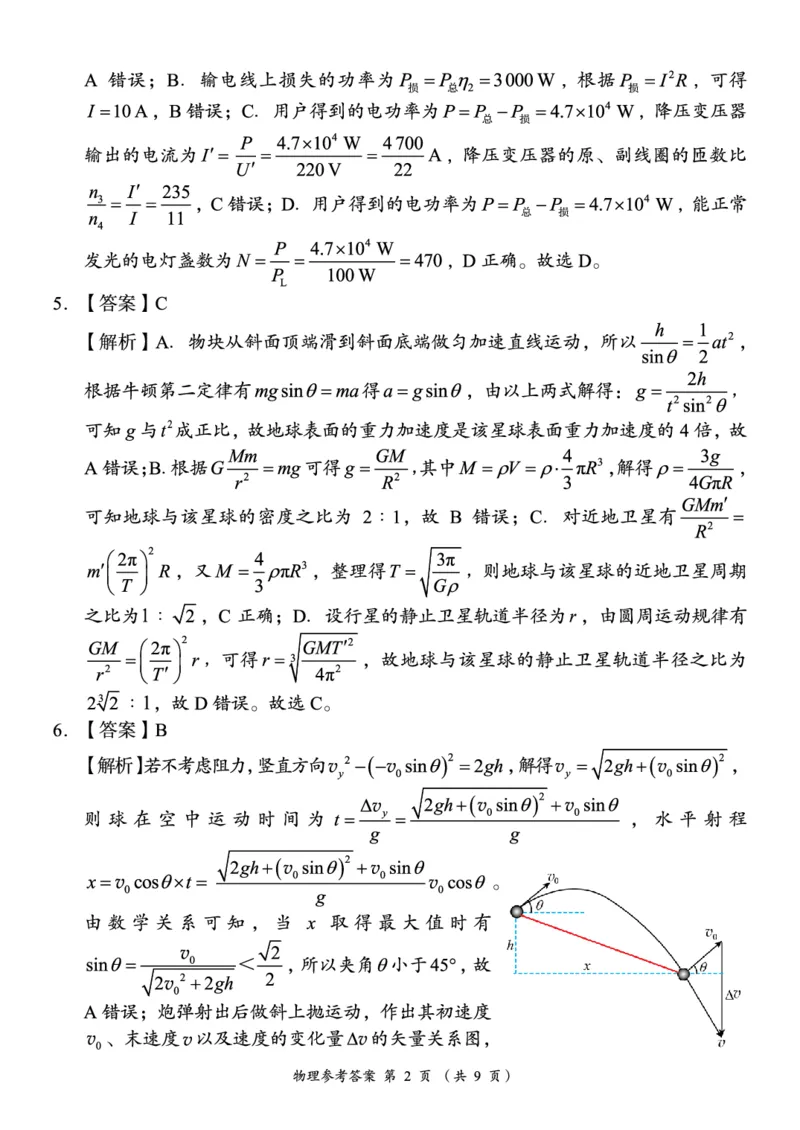 A 错误；B．输电线上损失的功率为P损=P总η2=3000W，根据P损=I²R，可得
I=10A，B错误；C．用户得到的电功率为P=P总−P损=4.7×10⁴ W，降压变压器
输出的电流为I′=P/U′=4.7×10⁴ W/220 V=4700/22 A，降压变压器的原、副线圈的匝数比
n3/n4=I′/I=235/11，C错误；D．用户得到的电功率为P=P总−P损=4.7×10⁴ W，能正常
发光的电灯盏数为N=P/PL=4.7×10⁴ W/100 W=470，D正确。故选D。
5．【答案】C
【解析】A．物块从斜面顶端滑到斜面底端做匀加速直线运动，所以h/sinθ=1/2 at²，
根据牛顿第二定律有mgsinθ=ma得a=gsinθ，由以上两式解得：g=2h/(t²sin²θ)，
可知g与t²成正比，故地球表面的重力加速度是该星球表面重力加速度的4倍，故
A错误；B.根据G Mm/r²=mg可得g=GM/R²，其中M=ρV=ρ·4/3 πR³，解得ρ=3g/4GπR，
可知地球与该星球的密度之比为 2：1，故 B 错误；C．对近地卫星有GMm′/R²=
m′(2π/T)²R，又M=4/3 ρπR³，整理得T=√(3π/Gρ)，则地球与该星球的近地卫星周期
之比为1：√2，C 正确；D．设行星的静止卫星轨道半径为r，由圆周运动规律有
GM/r²=(2π/T′)²r，可得r=∛(GMT′²/4π²)，故地球与该星球的静止卫星轨道半径之比为
2∛2：1，故D错误。故选C。
6．【答案】B
【解析】若不考虑阻力，竖直方向vy²−(−v0sinθ)²=2gh，解得vy=√(2gh+(v0sinθ)²)，
则球在空中运动时间为 t=Δvy/g=(√(2gh+(v0sinθ)²)+v0sinθ)/g，水平射程
x=v0cosθ×t=(√(2gh+(v0sinθ)²)+v0sinθ)/g v0cosθ。
由数学关系可知，当 x 取得最大值时有
sinθ=v0/√(2v0²+2gh)＜√2/2，所以夹角θ小于45°，故
A错误；炮弹射出后做斜上抛运动，作出其初速度
v0、末速度v以及速度的变化量Δv的矢量关系图，
v0
θ
h
x
v0
θ
Δv
v
物理参考答案 第 2 页（共 9 页）